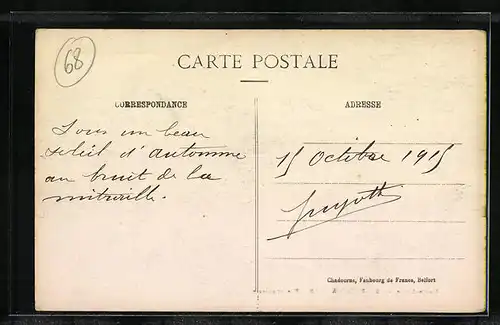 68
CARTE POSTALE
CORRESPONDANCE
ADRESSE
Sous un beau
soleil d'automne
au bruit de la
mitraille.
15 Octobre 1915
Guyott
Chadourne, Faubourg de France, Belfort